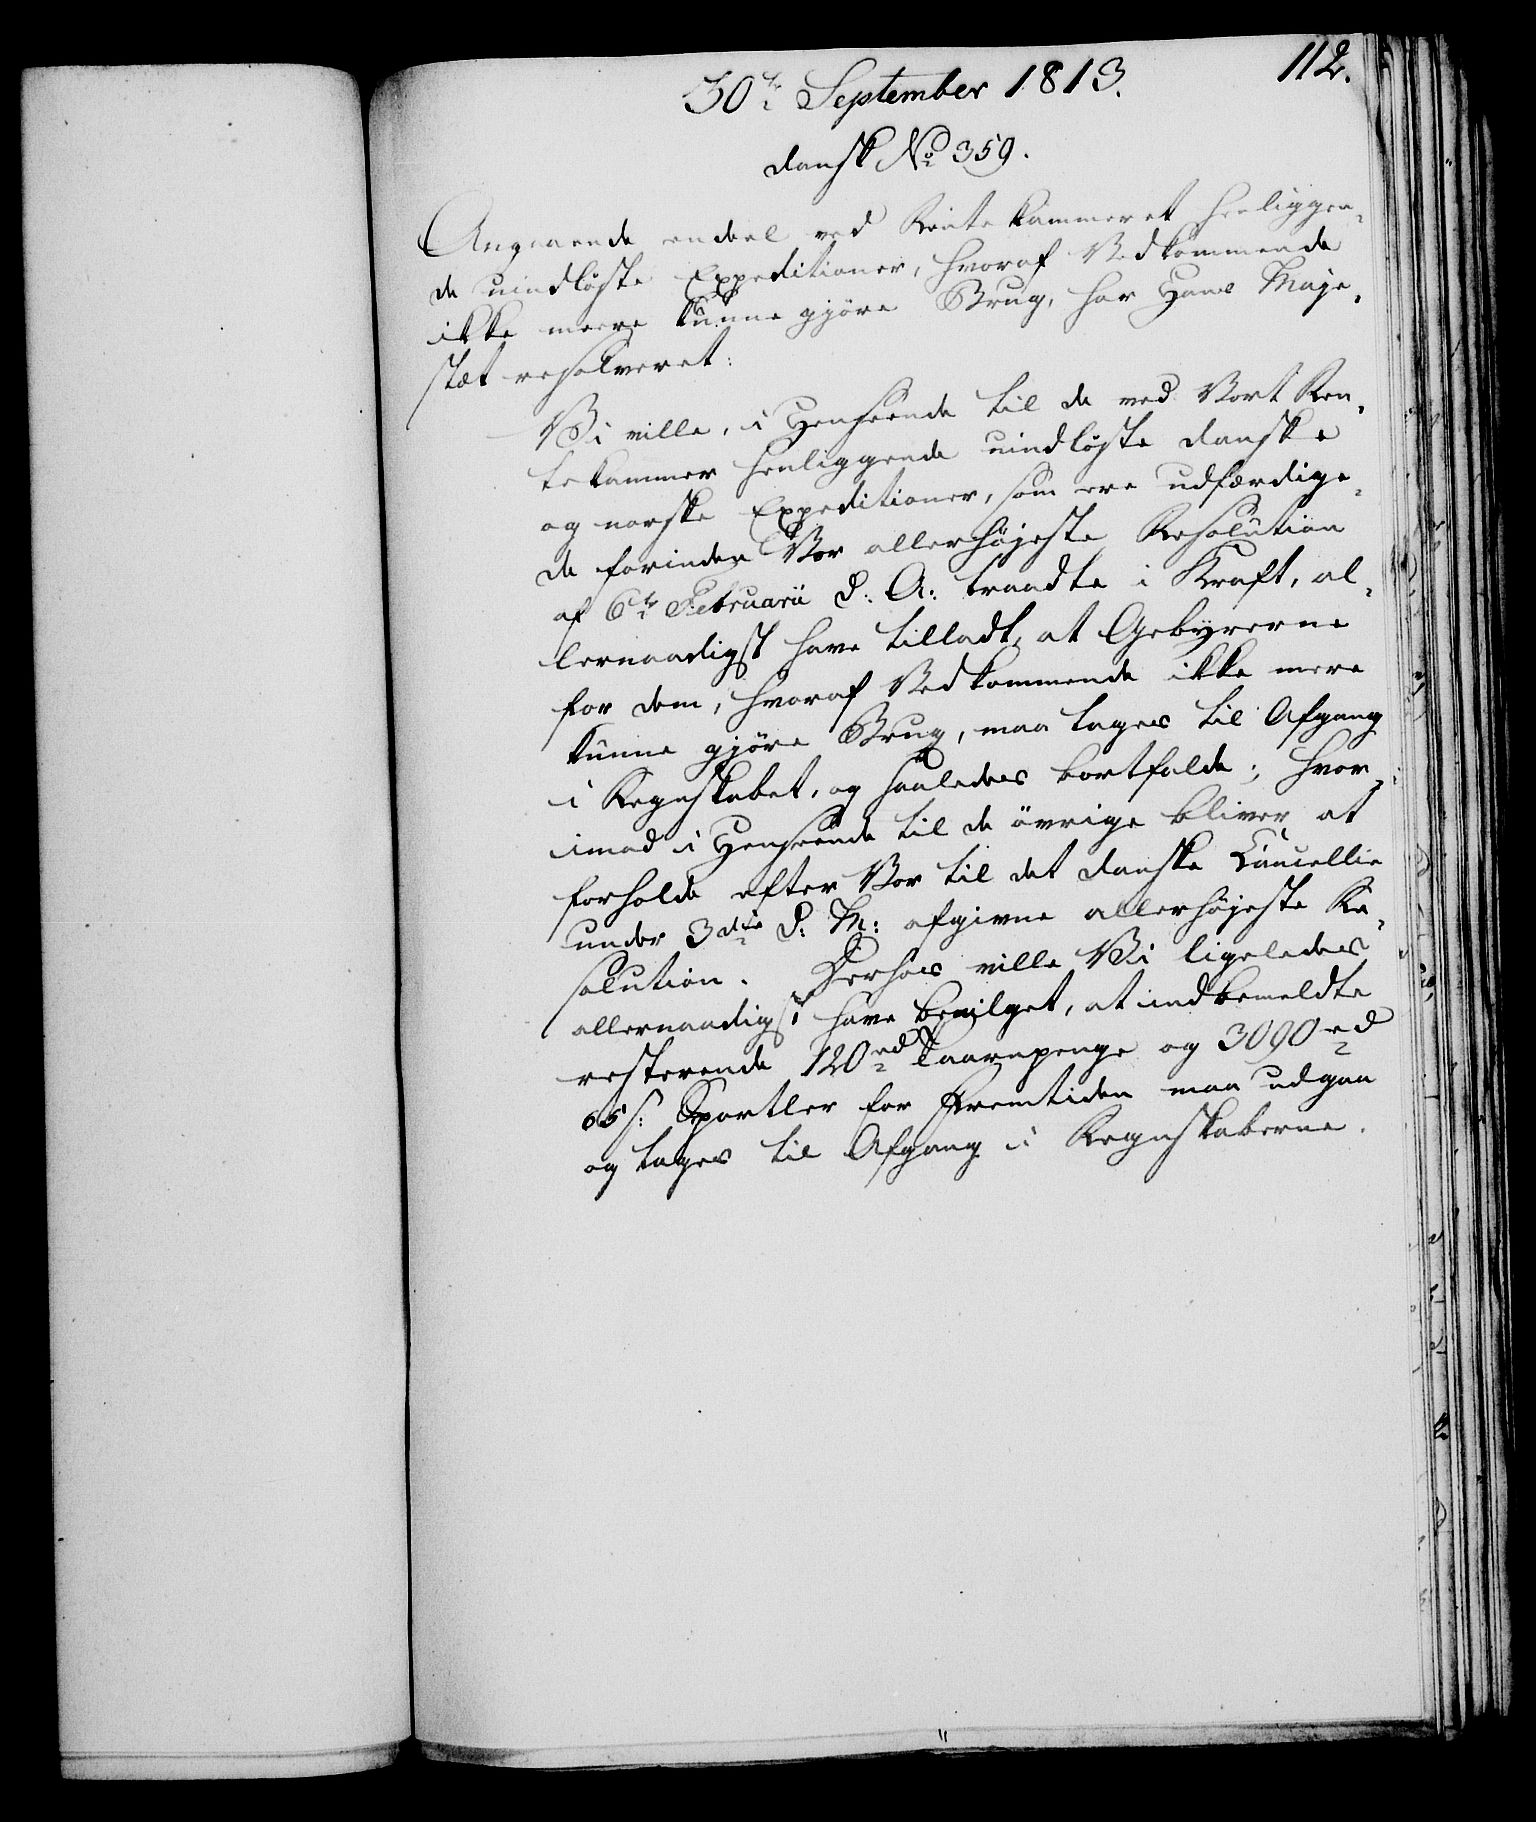 112.
30te September 1813.
dansk No 359.
Angaaende endeel ved Rentekammeret henliggen-
de uindløste Expeditioner, hvoraf Vedkommende
ikke meere kunne gjöre Brug, har Hans Maje-
stæt resolveret:
Vi ville, i Henseende til de ved Vort Ren-
tekammer henliggende uindløste danske
og norske Expeditioner, som ere udfærdige-
de forinden Vor allerhöjeste Resolution
af 6te Februarii d: A: traadte i Kraft, al-
lernaadigst have tilladt, at Gebyrerne
for dem, hvoraf Vedkommende ikke mere
kunne gjöre Brug, maa tages til Afgang
i Regnskabet, og saaledes bortfalde; hvor-
imod i Henseende til de övrige bliver at
forholde efter Vor til det danske Cancellie
under 3die d: M: afgivne allerhöjeste Re-
solution. Derhos ville Vi ligeledes
allernaadigst have bevilget, at indbemeldte
resterende 120 rd Taarnpenge og 3090 rd
65 s: Sportler for Fremtiden maa udgaa
og tages til Afgang i Regnskaberne.